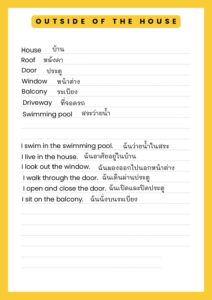 OUTSIDE OF THE HOUSE
House บ้าน
Roof หลังคา
Door ประตู
Window หน้าต่าง
Balcony ระเบียง
Driveway ที่จอดรถ
Swimming pool สระว่ายน้ำ
I swim in the swimming pool. ฉันว่ายน้ำในสระ
I live in the house. ฉันอาศัยอยู่ในบ้าน
I look out the window. ฉันมองออกไปนอกหน้าต่าง
I walk through the door. ฉันเดินผ่านประตู
I open and close the door. ฉันเปิดและปิดประตู
I sit on the balcony. ฉันนั่งบนระเบียง